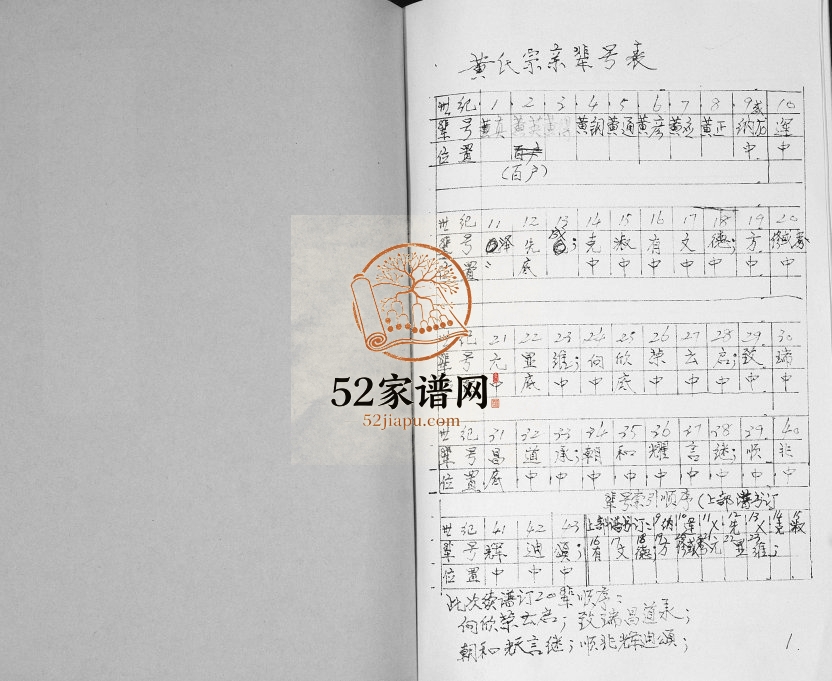 黄氏宗亲辈号表
世纪 1 2 3 4 5 6 7 8 9 10
辈号 黄真 黄英 黄 黄朝 黄通 黄彦 黄 黄正 纳 逢
位置 百户 中 中
(百户)
世纪 11 12 13 14 15 16 17 18 19 20
辈号 泽 先 克 淑 有 文 德; 方
位置 底 中 中 中 中 中 中 中
世纪 21 22 23 24 25 26 27 28 29 30
辈号 元 显 维; 向 欣 荣 云 启; 致 瑞
中 底 中 中 底 中 中 中 中 中
52家谱网
52jiapu.com
世纪 31 32 33 34 35 36 37 38 39 40
辈号 昌 道 承; 朝 和 耀 言 继; 顺 兆
位置 底 中 中 中 中 中 中 中 中 中
辈号索引顺序(上部谱书订
世纪 41 42 43 上部谱书订: 9 10逢 11 12先 13 14克 15淑
辈号 辉 迪 颂; 16有 17文 18德; 19方 元 显 维;
位置 中 中 中
此次续谱订20辈顺序:
向欣荣云启; 致瑞昌道承;
朝和耀言继; 顺兆辉迪颂;
1.